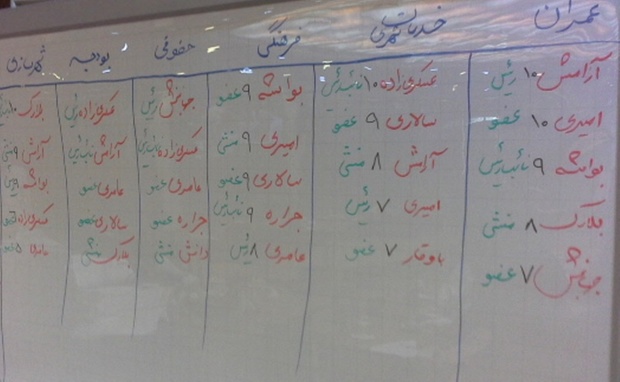 عمران
آرامش ۱۰ رئیس
امیری ۱۰ عضو
بواشه ۹ نائب رئیس
بلارک ۸ منشی
جوبخش ۷ عضو
خدمات شهری
عسکری‌زاده ۱۰ نائب رئیس
سالاری ۹ عضو
آرامش ۸ منشی
امیری ۷ رئیس
باوقار ۷ عضو
فرهنگی
بواشه ۹ عضو
امیری ۹ منشی
سالاری ۹ عضو
جراره ۹ نائب رئیس
عامری ۸ رئیس
حقوقی
جوبخش رئیس
عسکری‌زاده نائب رئیس
عامری عضو
جراره عضو
دانش منشی
بودجه
عسکری‌زاده رئیس
آرامش نائب رئیس
عامری عضو
سالاری عضو
بلارک منشی
شهرسازی
بلارک ۱۰
آرامش ۹ منشی
بواشه ۹ رئیس
عسکری‌زاده
عامری ۵ عضو